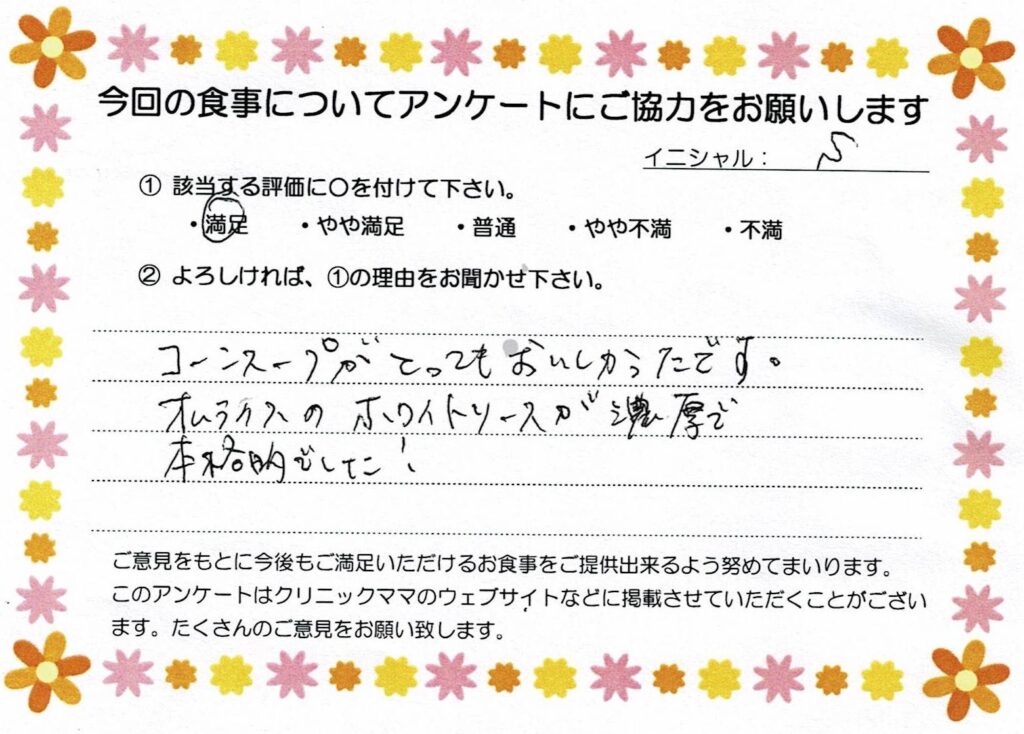 今回の食事についてアンケートにご協力をお願いします
イニシャル： S
① 該当する評価に〇を付けて下さい。
・満足 ・やや満足 ・普通 ・やや不満 ・不満
② よろしければ、①の理由をお聞かせ下さい。
コーンスープがとってもおいしかったです。
オムライスのホワイトソースが濃厚で
本格的でした！
ご意見をもとに今後もご満足いただけるお食事をご提供出来るよう努めてまいります。
このアンケートはクリニックママのウェブサイトなどに掲載させていただくことがござい
ます。たくさんのご意見をお願い致します。